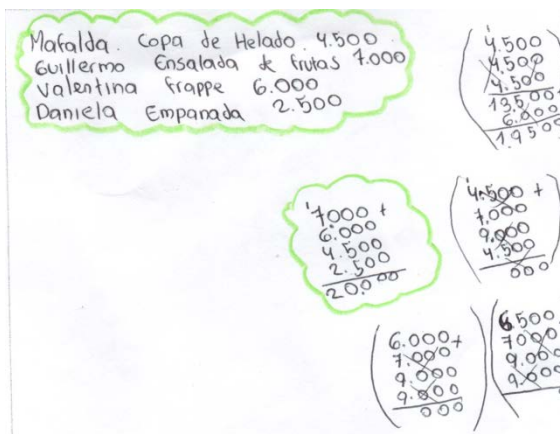 Mafalda. Copa de Helado. 4.500
Guillermo Ensalada de frutas 7.000
Valentina frappe 6.000
Daniela Empanada 2.500
4.500
4.500
4.500
13.500
6.000
1.9500
7000 +
6.000
4.500
2.500
20.000
4.500 +
7.000
9.000
4.500
000
6.000 +
7.000
9.000
9.000
000
6.500
7000
9.000
9.000